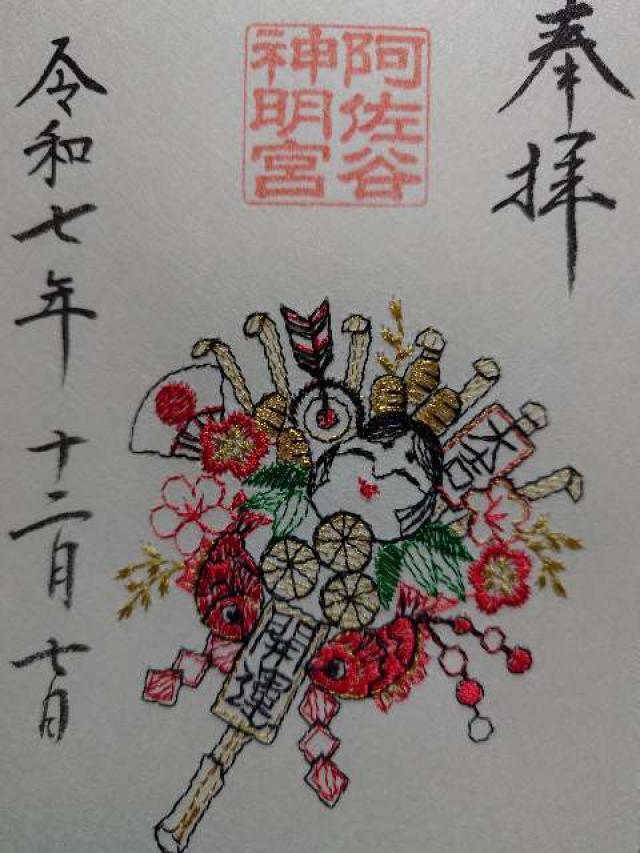 奉拝
阿佐谷
神明宮
大吉
開運
令和七年 十二月 七日